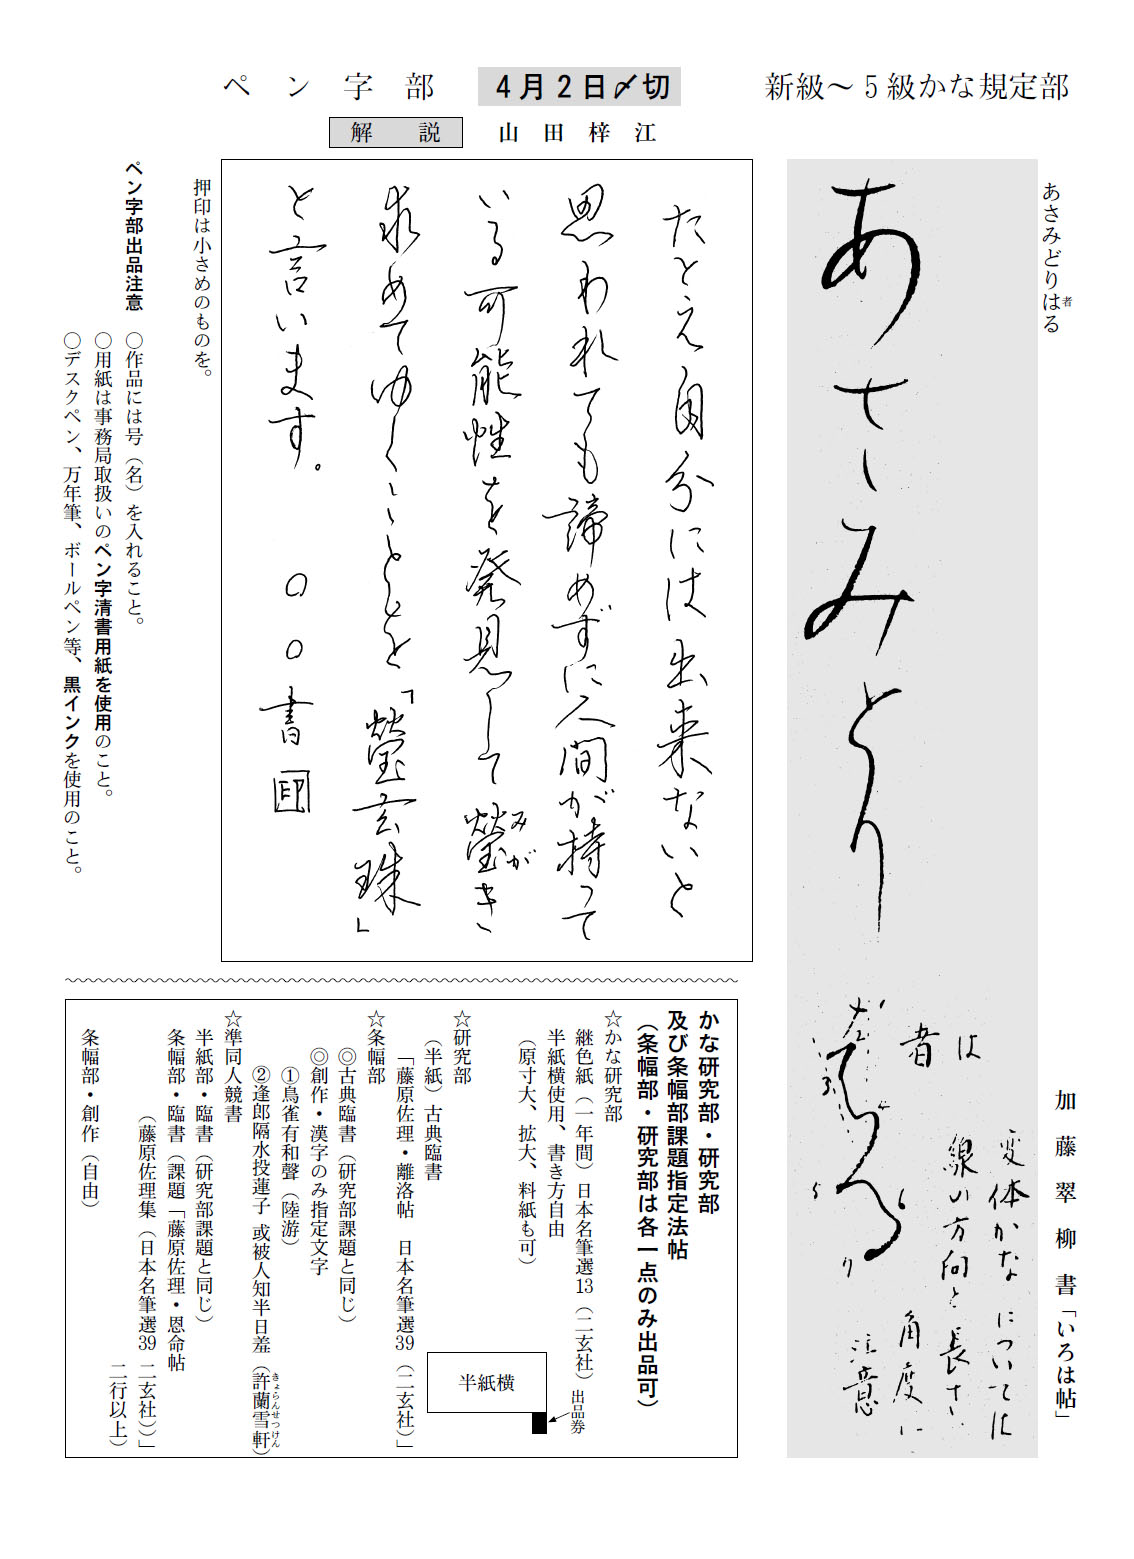 新級〜5級かな規定部
あさみどりはる
者
加藤翠柳書「いろは帖」
あさみとり者る
は
者
変体かなについては
線の方向と長さ
角度に
注意
1
2
3
4
5
6
7
ペン字部
4月2日〆切
解説
山田梓江
たとえ自分には出来ないと
思われても諦めずに人間が持って
いる可能性を発見して瑩き
みが
求めてゆくことを「瑩玄珠」
と言います。
○○書 印
押印は小さめのものを。
ペン字部出品注意
○作品には号（名）を入れること。
○用紙は事務局取扱いのペン字清書用紙を使用のこと。
○デスクペン、万年筆、ボールペン等、黒インクを使用のこと。
かな研究部・研究部
及び条幅部課題指定法帖
（条幅部・研究部は各一点のみ出品可）
☆かな研究部
継色紙（一年間）日本名筆選13（二玄社）
半紙横使用、書き方自由
（原寸大、拡大、料紙も可）
半紙横
出品券
☆研究部
（半紙）古典臨書
「藤原佐理・離洛帖　日本名筆選39（二玄社）」
☆条幅部
◎古典臨書（研究部課題と同じ）
◎創作・漢字のみ指定文字
①鳥雀有和聲（陸游）
②逢郎隔水投蓮子 或被人知半日羞（許蘭雪軒）
きょらんせつけん
☆準同人競書
半紙部・臨書（研究部課題と同じ）
条幅部・臨書（課題「藤原佐理・恩命帖
（藤原佐理集（日本名筆選39 二玄社））」
二行以上）
条幅部・創作（自由）